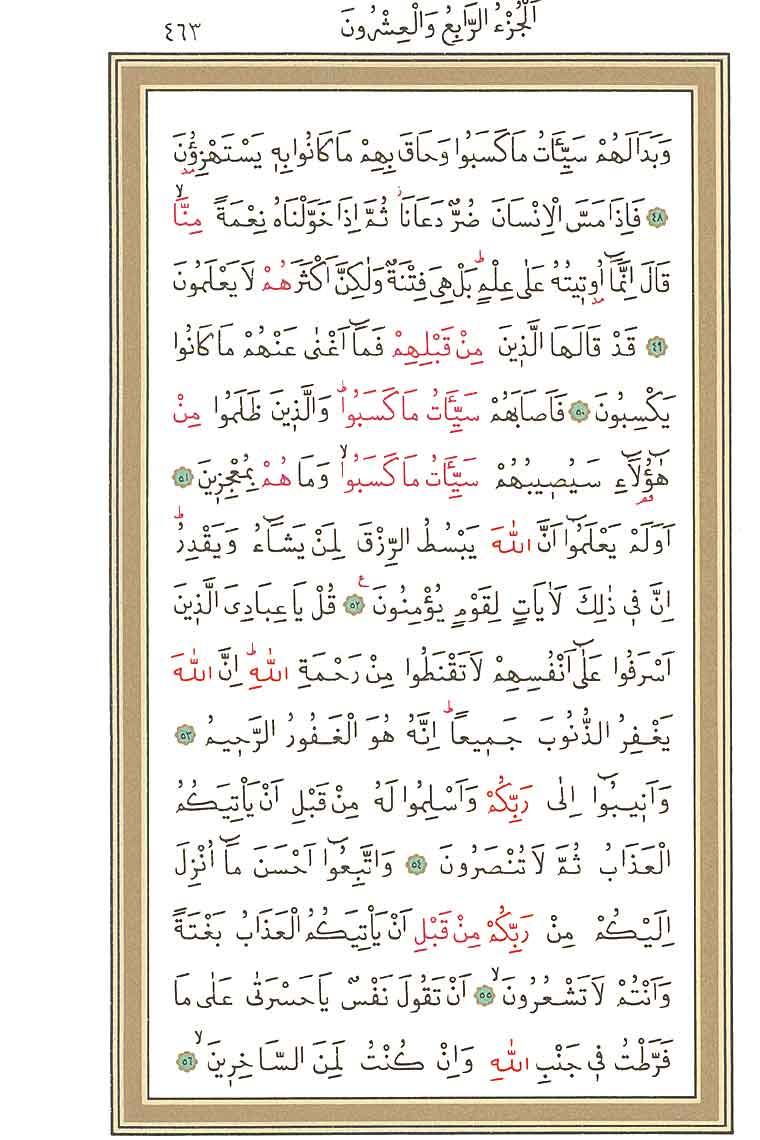 اَلْجُزْءُ الرَّابِعُ وَالْعِشْرُونَ ٤٦٣
وَبَدَا لَهُمْ سَيِّـَٔاتُ مَا كَسَبُوا وَحَاقَ بِهِمْ مَا كَانُوا بِهٖ يَسْتَهْزِؤُ۫نَ
﴿٤٨﴾ فَاِذَا مَسَّ الْاِنْسَانَ ضُرٌّ دَعَانَاۘ ثُمَّ اِذَا خَوَّلْنَاهُ نِعْمَةً مِنَّاۙ
قَالَ اِنَّمَٓا اُو۫تٖيتُهُ عَلٰى عِلْمٍؕ بَلْ هِيَ فِتْنَةٌ وَلٰكِنَّ اَكْثَرَهُمْ لَا يَعْلَمُونَ
﴿٤٩﴾ قَدْ قَالَهَا الَّذٖينَ مِنْ قَبْلِهِمْ فَمَٓا اَغْنٰى عَنْهُمْ مَا كَانُوا
يَكْسِبُونَ ﴿٥٠﴾ فَاَصَابَهُمْ سَيِّـَٔاتُ مَا كَسَبُواؕ وَالَّذٖينَ ظَلَمُوا مِنْ
هٰٓؤُ۬لَٓاءِ سَيُصٖيبُهُمْ سَيِّـَٔاتُ مَا كَسَبُواۙ وَمَا هُمْ بِمُعْجِزٖينَ ﴿٥١﴾
اَوَلَمْ يَعْلَمُٓوا اَنَّ اللّٰهَ يَبْسُطُ الرِّزْقَ لِمَنْ يَشَٓاءُ وَيَقْدِرُؕ
اِنَّ فٖي ذٰلِكَ لَاٰيَاتٍ لِقَوْمٍ يُؤْمِنُونَࣖ ﴿٥٢﴾ قُلْ يَا عِبَادِىَ الَّذٖينَ
اَسْرَفُوا عَلٰٓى اَنْفُسِهِمْ لَا تَقْنَطُوا مِنْ رَحْمَةِ اللّٰهِؕ اِنَّ اللّٰهَ
يَغْفِرُ الذُّنُوبَ جَمٖيعاًؕ اِنَّهُ هُوَ الْغَفُورُ الرَّحٖيمُ ﴿٥٣﴾
وَاَنٖيبُٓوا اِلٰى رَبِّكُمْ وَاَسْلِمُوا لَهُ مِنْ قَبْلِ اَنْ يَأْتِيَكُمُ
الْعَذَابُ ثُمَّ لَا تُنْصَرُونَ ﴿٥٤﴾ وَاتَّبِعُٓوا اَحْسَنَ مَٓا اُنْزِلَ
اِلَيْكُمْ مِنْ رَبِّكُمْ مِنْ قَبْلِ اَنْ يَأْتِيَكُمُ الْعَذَابُ بَغْتَةً
وَاَنْتُمْ لَا تَشْعُرُونَۙ ﴿٥٥﴾ اَنْ تَقُولَ نَفْسٌ يَا حَسْرَتٰى عَلٰى مَا
فَرَّطْتُ فٖي جَنْبِ اللّٰهِ وَاِنْ كُنْتُ لَمِنَ السَّاخِرٖينَۙ ﴿٥٦﴾